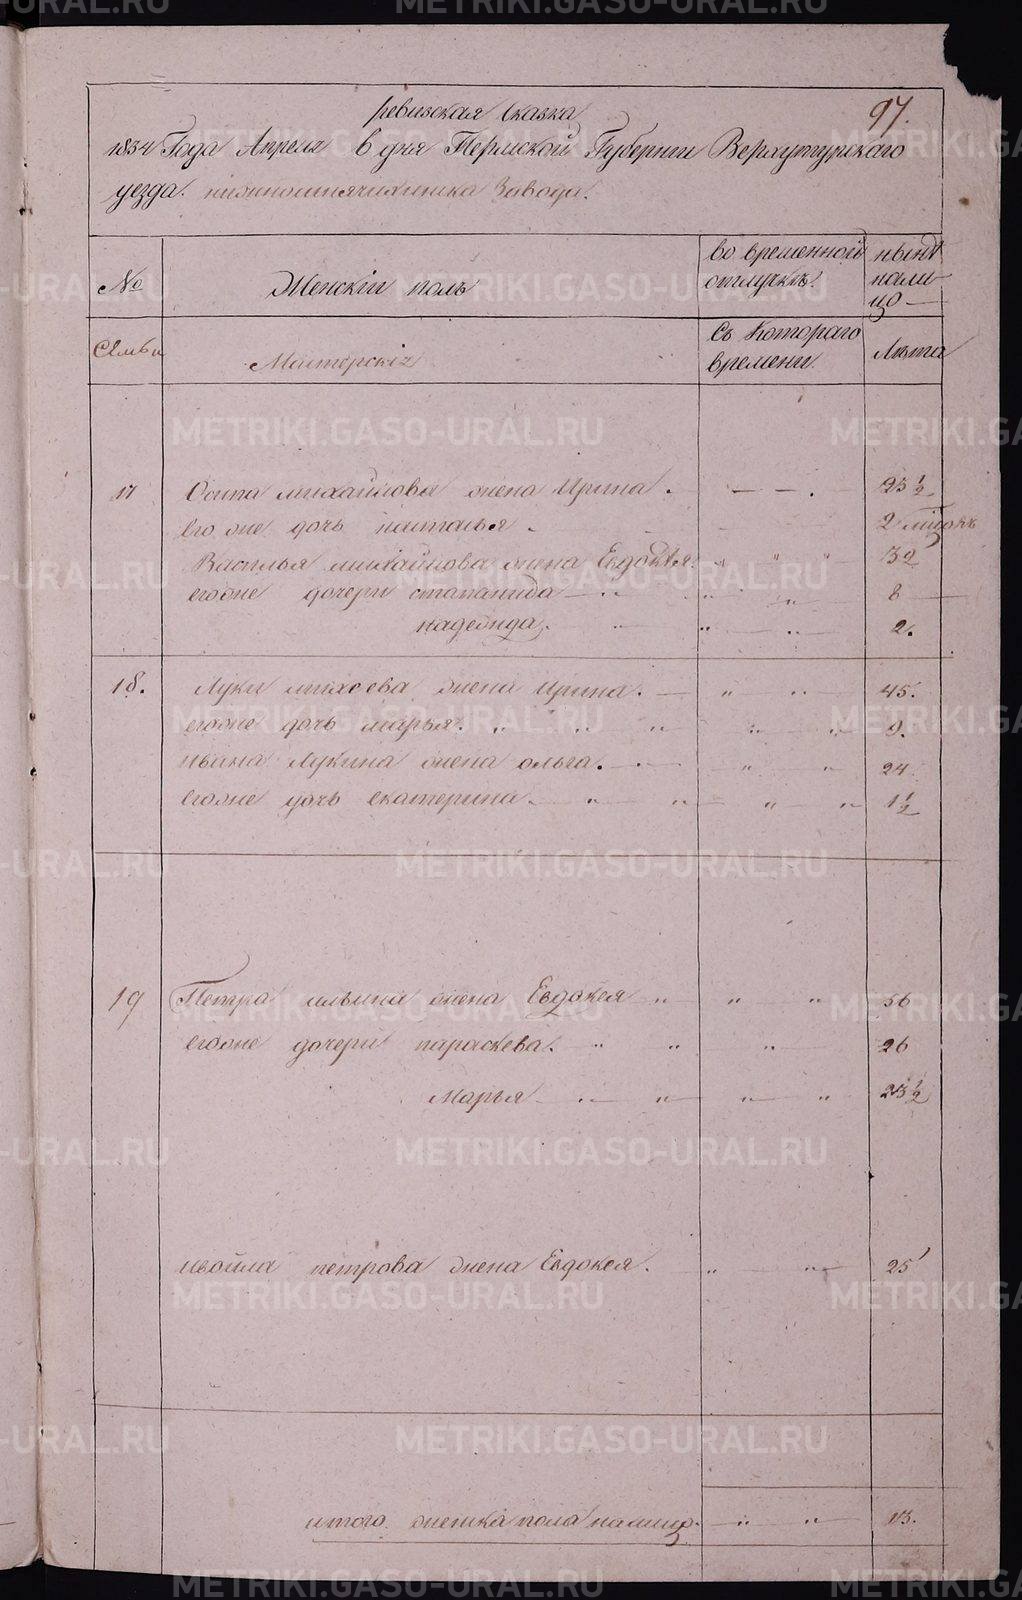 97.
ревизская Сказка
1834 Года Апреля в дня Пермской Губернии Верхутурскаго
уезда. нижносинячихинска Завода.
№ Женскiи полъ во временной отлучкъ. нынѣ налицо
Семьи Мастерскiя Съ Котораго времени. Лѣта
17 Осипа михайлова жена Ирина. — — . 23 1/2
Его же дочь наталья. 2
Василья михайлова жена Евдокея. „ „ „ 32
егоже дочери стапанида — „ „ „ 8
надежида. „ „ „ 2.
18. Луки михеева жена Ирина. — „ „ 45.
егоже дочь марья. „ „ „ „ „ 9.
ивана Лукина жена ольга. — „ „ 24.
Егоже дочь екатерина. „ „ „ „ 1 1/2
19 Петра ильина жена Евдокея „ „ „ 56
егоже дочери параскева. „ „ „ 26
Марья — „ „ „ „ 23 1/2
петрова жена Евдокея. „ „ 25
итого женска пола налицо. „ „ 13.
METRIKI.GASO-URAL.RU